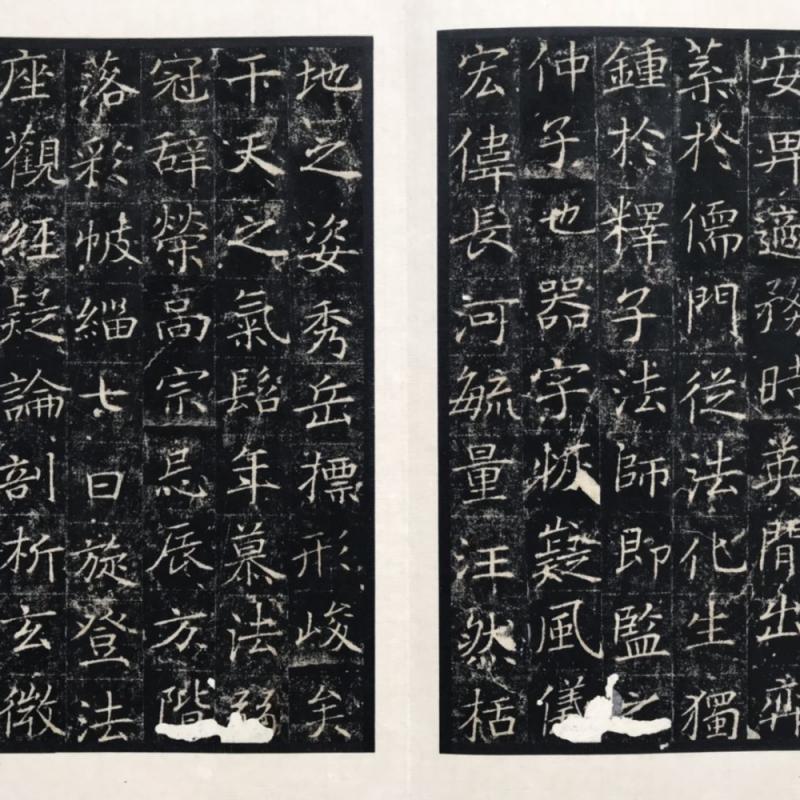 安畀適務時英閒出齊
於儒門從法化生獨
鍾於釋子法師即監之
仲子也器宇恢嶷風儀
宏偉長河毓量汪然括
地之姿秀岳摽形峻矣
干天之氣髫年慕法弱
冠辭榮高宗忌辰方階
落彩帔緇七日旋登法
座觀經疑論剖析玄微